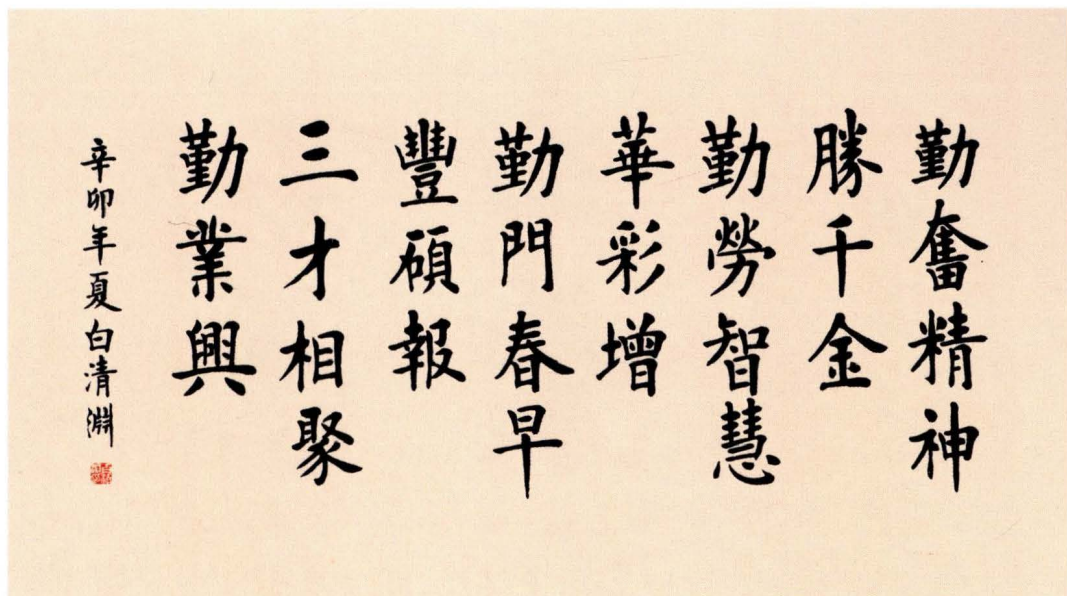 勤奮精神
勝千金
勤勞智慧
華彩增
勤門春早
豐碩報
三才相聚
勤業興
辛卯年夏白清淵